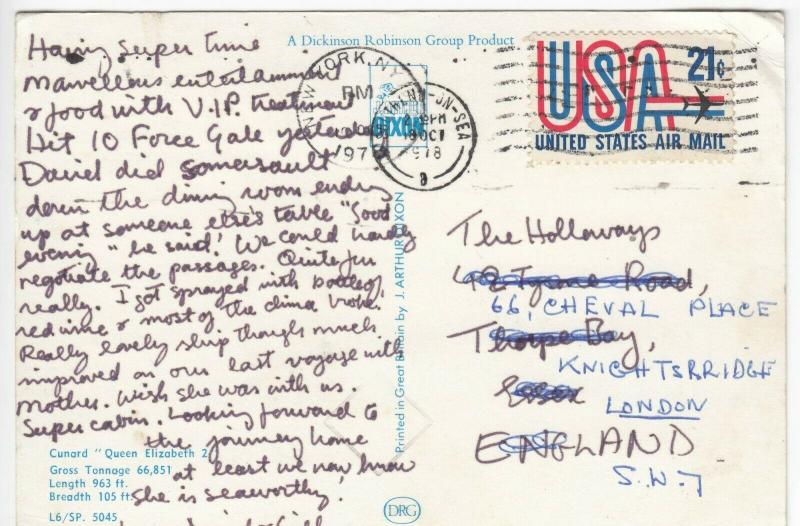 Having super time
marvellous entertainment
& food with V.I.P. treatment
Hit 10 Force Gale yesterday
David did somersault
down the dining room ending
up at someone else's table "Good
evening" he said! We could hardly
negotiate the passages. Quite fun
really. I got sprayed with bottle of
red wine & most of the china broke.
Really lovely ship though much
improved on our last voyage with
Mother. Wish she was with us.
Super cabin. Looking forward to
the journey home
at least we now know
she is seaworthy!
Cunard "Queen Elizabeth 2
Gross Tonnage 66,851
Length 963 ft.
Breadth 105 ft.
L6/SP. 5045
A Dickinson Robinson Group Product
DIXON
Printed in Great Britain by J. ARTHUR DIXON
DRG
NEW YORK, N.Y.
PM
197
ON-SEA
PM
OCT
1978
USA 21¢
UNITED STATES AIR MAIL
The Holloways
42 Tyrone Road,
66, CHEVAL PLACE
Thorpe Bay,
KNIGHTSBRIDGE
Essex
LONDON
ENGLAND
S.W.7